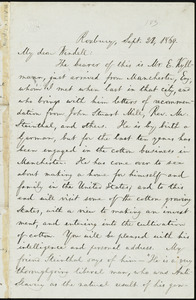 Roxbury, Sept. 28, 1869.
My dear Wendell:
The bearer of this is Mr. E. Hoff-
mayor, just arrived from Manchester, Eng.
whom I met when last in that city, and
who brings with him letters of recommen-
dation from John Stuart Mill, Rev. Mr.
Steinthal, and others. He is by birth a
German, but for the last ten years has
been engaged in the cotton business in
Manchester. He has come over to see
about making a home for himself and
family in the United States; and to this
end will visit some of the cotton growing
States, with a view to making an invest-
ment, and entering into the cultivation
of cotton. You will be pleased with his
intelligence and personal address. My
friend Steinthal says of him—"He is a
thoroughgoing liberal man, who was Anti-
Slavery as the natural result of his gene-